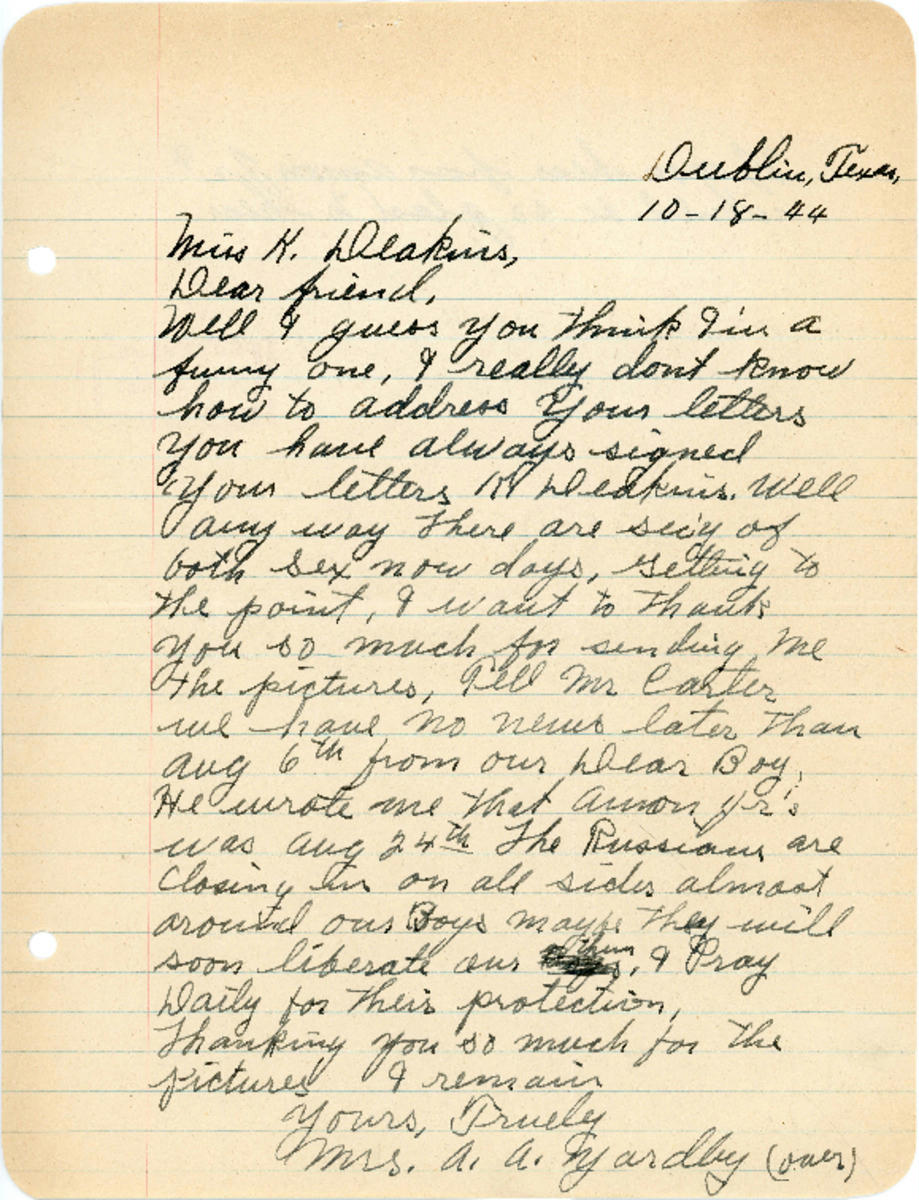 Dublin, Texas,
10-18-44
Miss K. Deakins,
Dear friend,
Well I guess you think I'm a
funny one, I really dont know
how to address your letters
you have always signed
your letters K Deakins. Well
any way there are secy of
both sex now days, getting to
the point, I want to thank
you so much for sending me
the pictures, Tell Mr Carter
we have no news later than
Aug 6th from our Dear Boy,
He wrote me that Amon Jr's
was Aug 24th The Russians are
closing in on all sides almost
around our Boys maybe they will
soon liberate our them, I Pray
Daily for their protection,
Thanking you so much for the
pictures I remain
Yours, Truely
Mrs. A. A. Yardley (over)